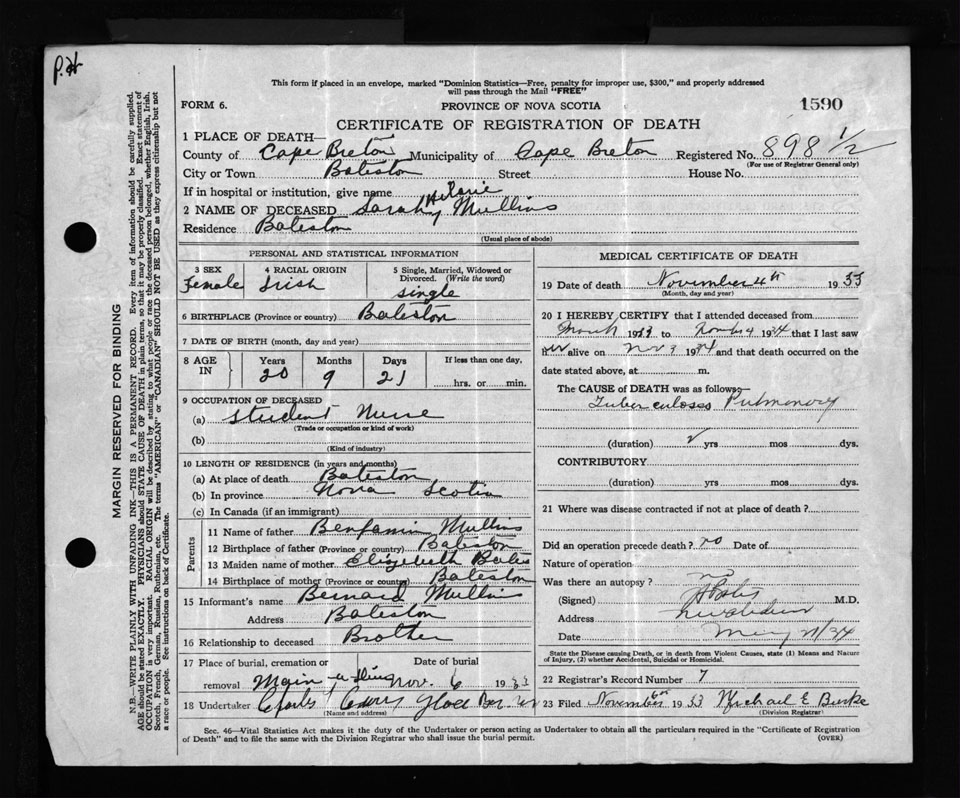 P.H
This form if placed in an envelope, marked "Dominion Statistics—Free, penalty for improper use, $300," and properly addressed
will pass through the Mail "FREE"
FORM 6.
PROVINCE OF NOVA SCOTIA
1590
CERTIFICATE OF REGISTRATION OF DEATH
1 PLACE OF DEATH—
County of Cape Breton Municipality of Cape Breton Registered No. 898 1/2
(For use of Registrar General only)
City or Town Bateston Street House No.
If in hospital or institution, give name
2 NAME OF DECEASED Sarah Mullins
Residence Bateston
(Usual place of abode)
PERSONAL AND STATISTICAL INFORMATION
3 SEX 4 RACIAL ORIGIN 5 Single, Married, Widowed or Divorced. (Write the word)
Female Irish Single
6 BIRTHPLACE (Province or country) Bateston
7 DATE OF BIRTH (month, day and year)
8 AGE IN Years Months Days If less than one day,
20 9 21 hrs. or min.
9 OCCUPATION OF DECEASED
(a) Student Nurse
(Trade or occupation or kind of work)
(b)
(Kind of industry)
10 LENGTH OF RESIDENCE (in years and months)
(a) At place of death Bateston
(b) In province Nova Scotia
(c) In Canada (if an immigrant)
Parents
11 Name of father Benjamin Mullins
12 Birthplace of father (Province or country) Bateston
13 Maiden name of mother Elizabeth Bates
14 Birthplace of mother (Province or country) Bateston
15 Informant's name Bernard Mullins
Address Bateston
16 Relationship to deceased Brother
17 Place of burial, cremation or removal Date of burial
Main-a-Dieu Nov. 6 1933
18 Undertaker Curry Glace Bay
(Name and address)
MEDICAL CERTIFICATE OF DEATH
19 Date of death November 4th 1933
(Month, day and year)
20 I HEREBY CERTIFY that I attended deceased from
March to Nov 4 1934 that I last saw
her alive on Nov 3 1934 and that death occurred on the
date stated above, at m.
The CAUSE of DEATH was as follows:—
Tuberculosis Pulmonary
(duration) yrs mos dys.
CONTRIBUTORY
(duration) yrs mos dys.
21 Where was disease contracted if not at place of death?
Did an operation precede death? no Date of
Nature of operation
Was there an autopsy? no
(Signed) M.D.
Address
Date May /34
State the Disease causing Death, or in death from Violent Causes, state (1) Means and Nature
of Injury, (2) whether Accidental, Suicidal or Homicidal.
22 Registrar's Record Number 7
23 Filed November 6th 1933 Michael E Burke
(Division Registrar)
Sec. 46—Vital Statistics Act makes it the duty of the Undertaker or person acting as Undertaker to obtain all the particulars required in the "Certificate of Registration
of Death" and to file the same with the Division Registrar who shall issue the burial permit.
(OVER)
MARGIN RESERVED FOR BINDING
N.B.—WRITE PLAINLY WITH UNFADING INK—THIS IS A PERMANENT RECORD. Every item of information should be carefully supplied.
AGE should be stated EXACTLY. PHYSICIANS should STATE CAUSE OF DEATH in plain terms, so that it may be properly classified. Exact statement of
OCCUPATION is very important. RACIAL ORIGIN will be described by stating to what people or race the deceased person belonged, whether English, Irish,
Scotch, French, German, Russian, Ruthenian, etc. The terms "AMERICAN" or "CANADIAN" SHOULD NOT BE USED as they express citizenship but not
a race or people. See instructions on back of Certificate.